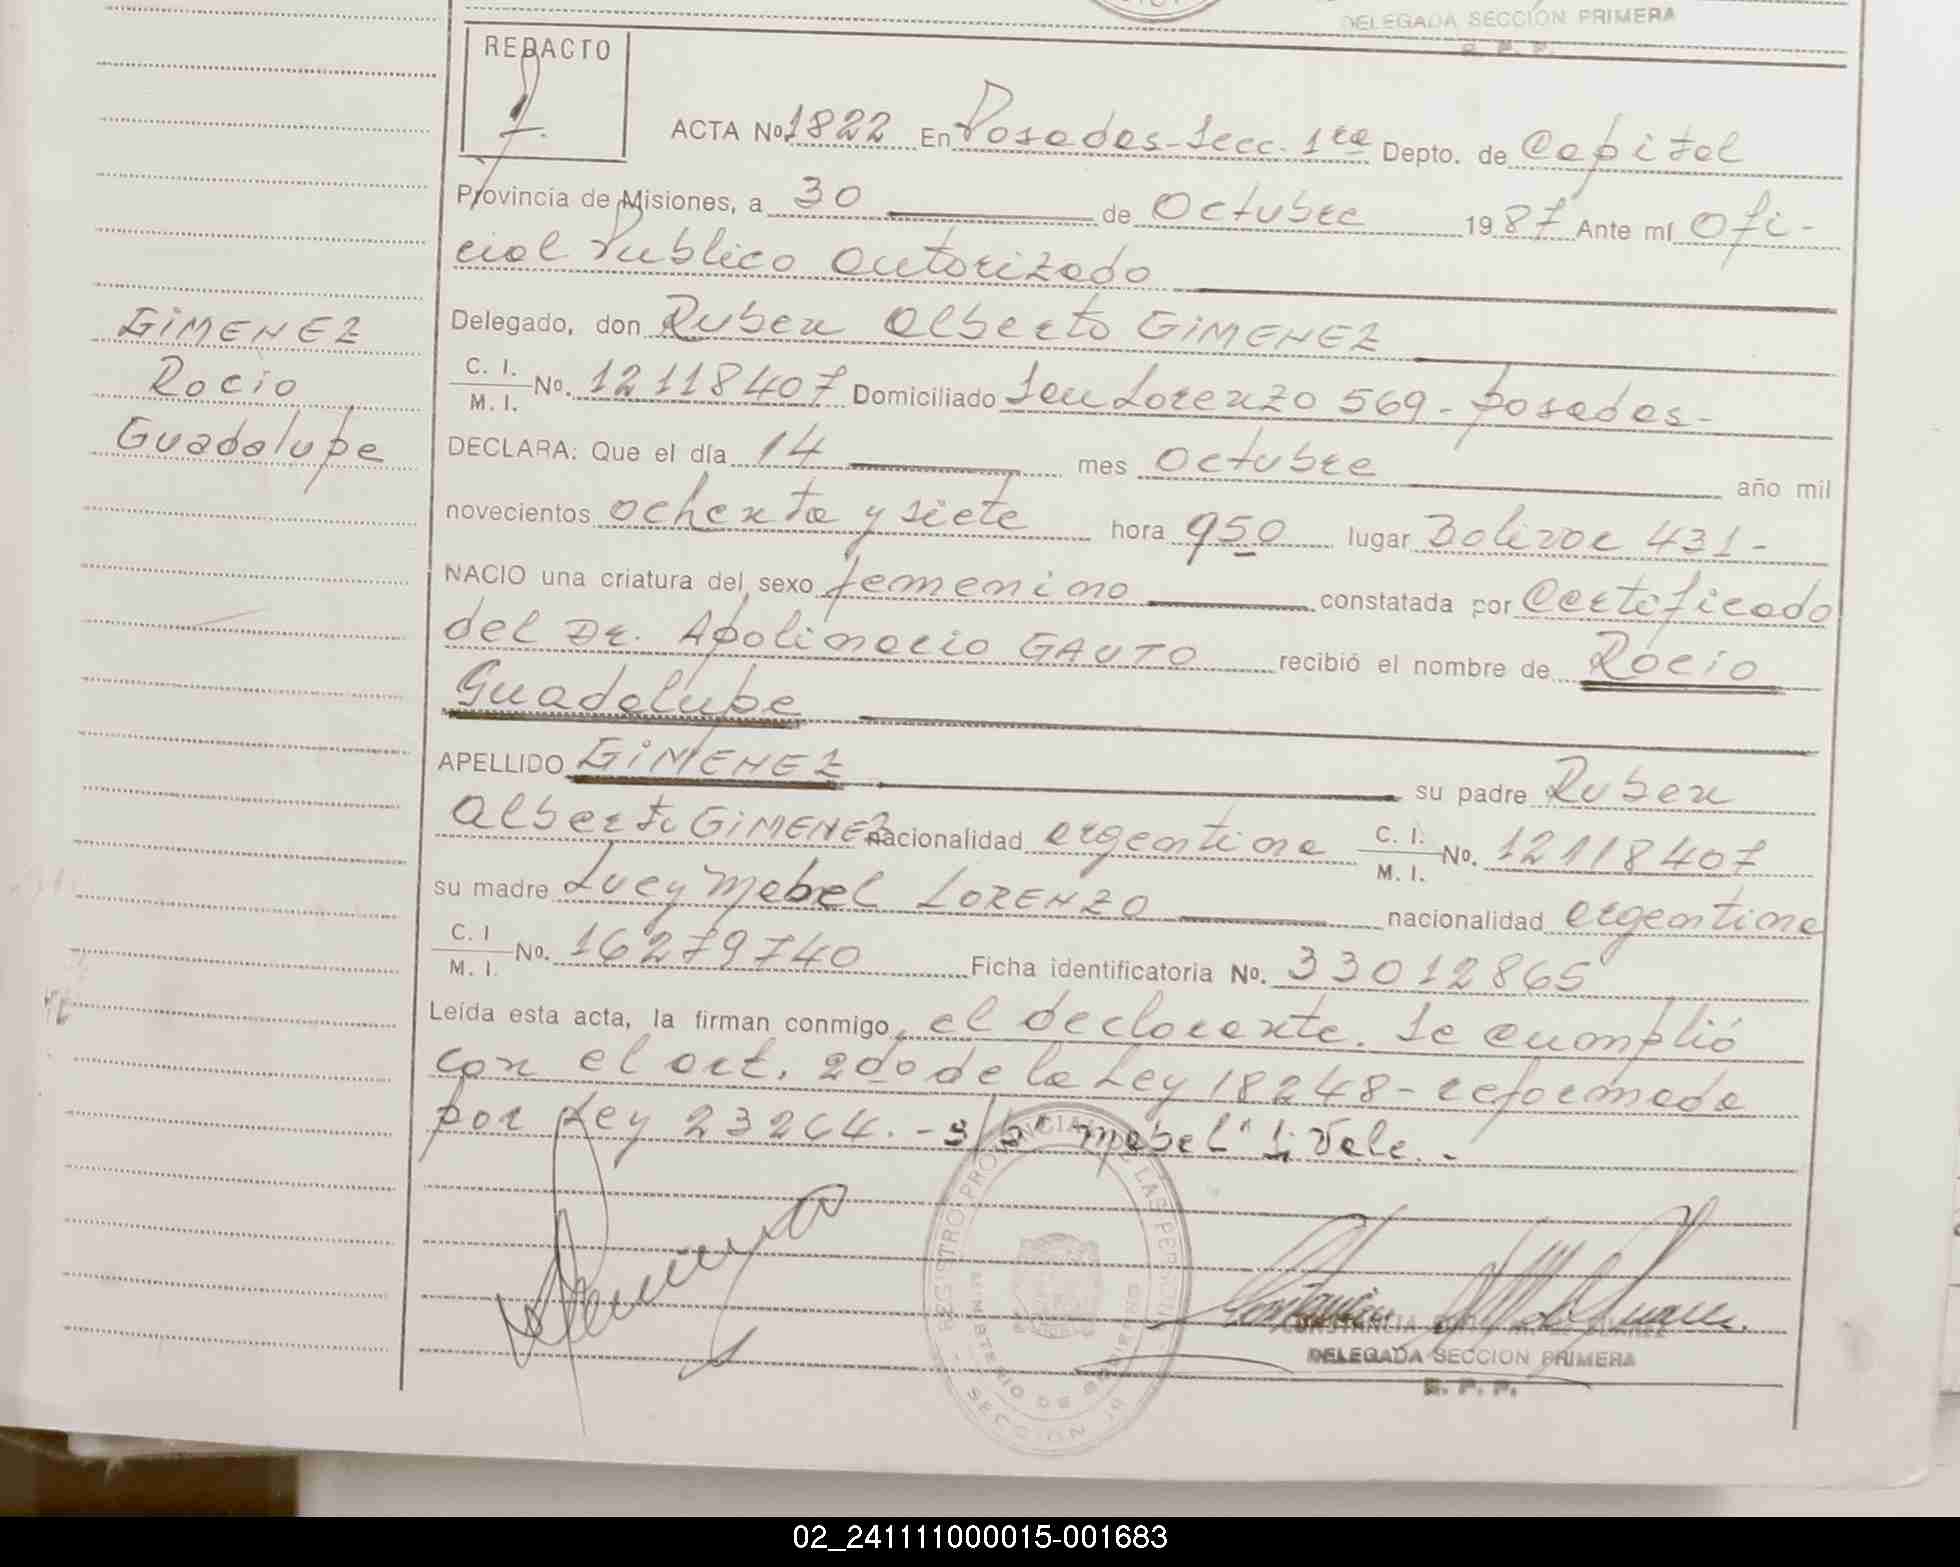 DELEGADA SECCION PRIMERA
R. P. P.
REDACTO
ACTA Nº 1822 En Posadas-Secc. 1ra Depto. de Capital
Provincia de Misiones, a 30 de Octubre 1987 Ante mí Ofi-
cial Publico Autorizado
Delegado, don Ruben Alberto GIMENEZ
C. I.
M. I. Nº. 12118407 Domiciliado San Lorenzo 569-Posadas-
DECLARA: Que el día 14 mes Octubre año mil
novecientos ochenta y siete hora 950 lugar Bolivar 431-
NACIO una criatura del sexo femenino constatada por Certificado
del Dr. Apolinario GAUTO recibió el nombre de Rocio
Guadalupe
APELLIDO GIMENEZ su padre Ruben
Alberto GIMENEZ nacionalidad argentina C. I. M. I. Nº. 12118407
su madre Lucy Mabel LORENZO nacionalidad argentina
C. I M. I. Nº. 16279740 Ficha identificatoria Nº. 33012865
Leída esta acta, la firman conmigo, el declarante. Se cumplió
con el art. 2do de la Ley 18248-reformada
por Ley 23264.-s/b" mabel" S: Vale.-
GIMENEZ
Rocio
Guadalupe
REGISTRO PROVINCIAL DE LAS PERSONAS
MINISTERIO DE GOBIERNO
SECCION 1ª
CONSTANCIA
DELEGADA SECCION PRIMERA
R. P. P.
02_241111000015-001683